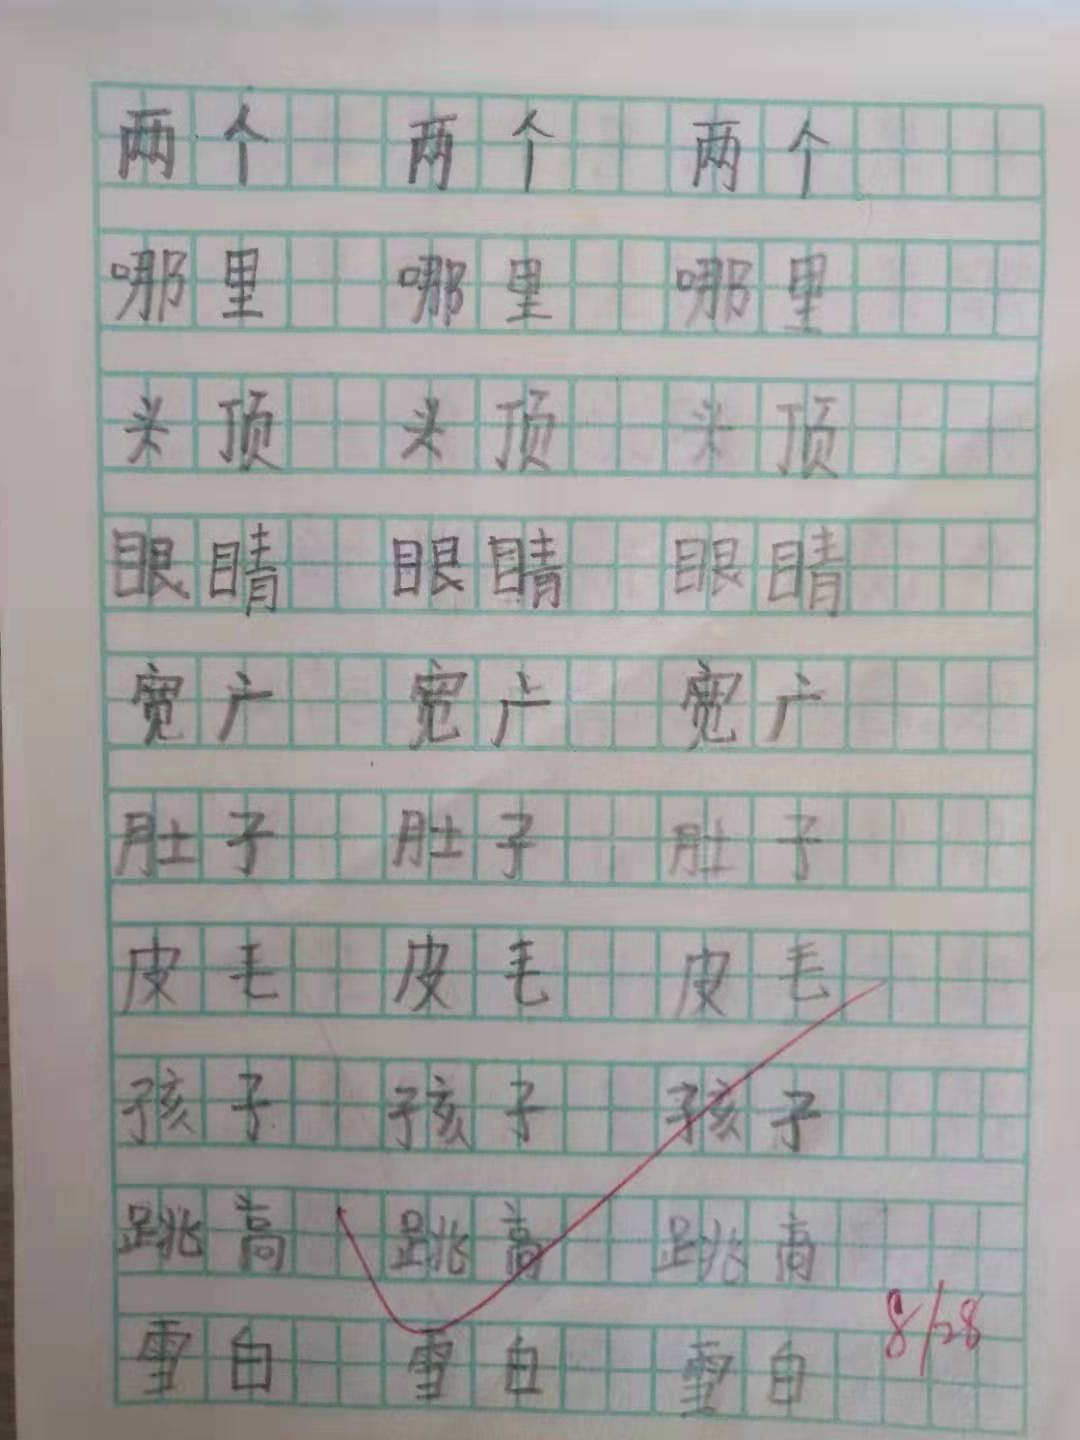 两个 两个 两个
哪里 哪里 哪里
头顶 头顶 头顶
眼睛 眼睛 眼睛
宽广 宽广 宽广
肚子 肚子 肚子
皮毛 皮毛 皮毛
孩子 孩子 孩子
跳高 跳高 跳高
8/28
雪白 雪白 雪白